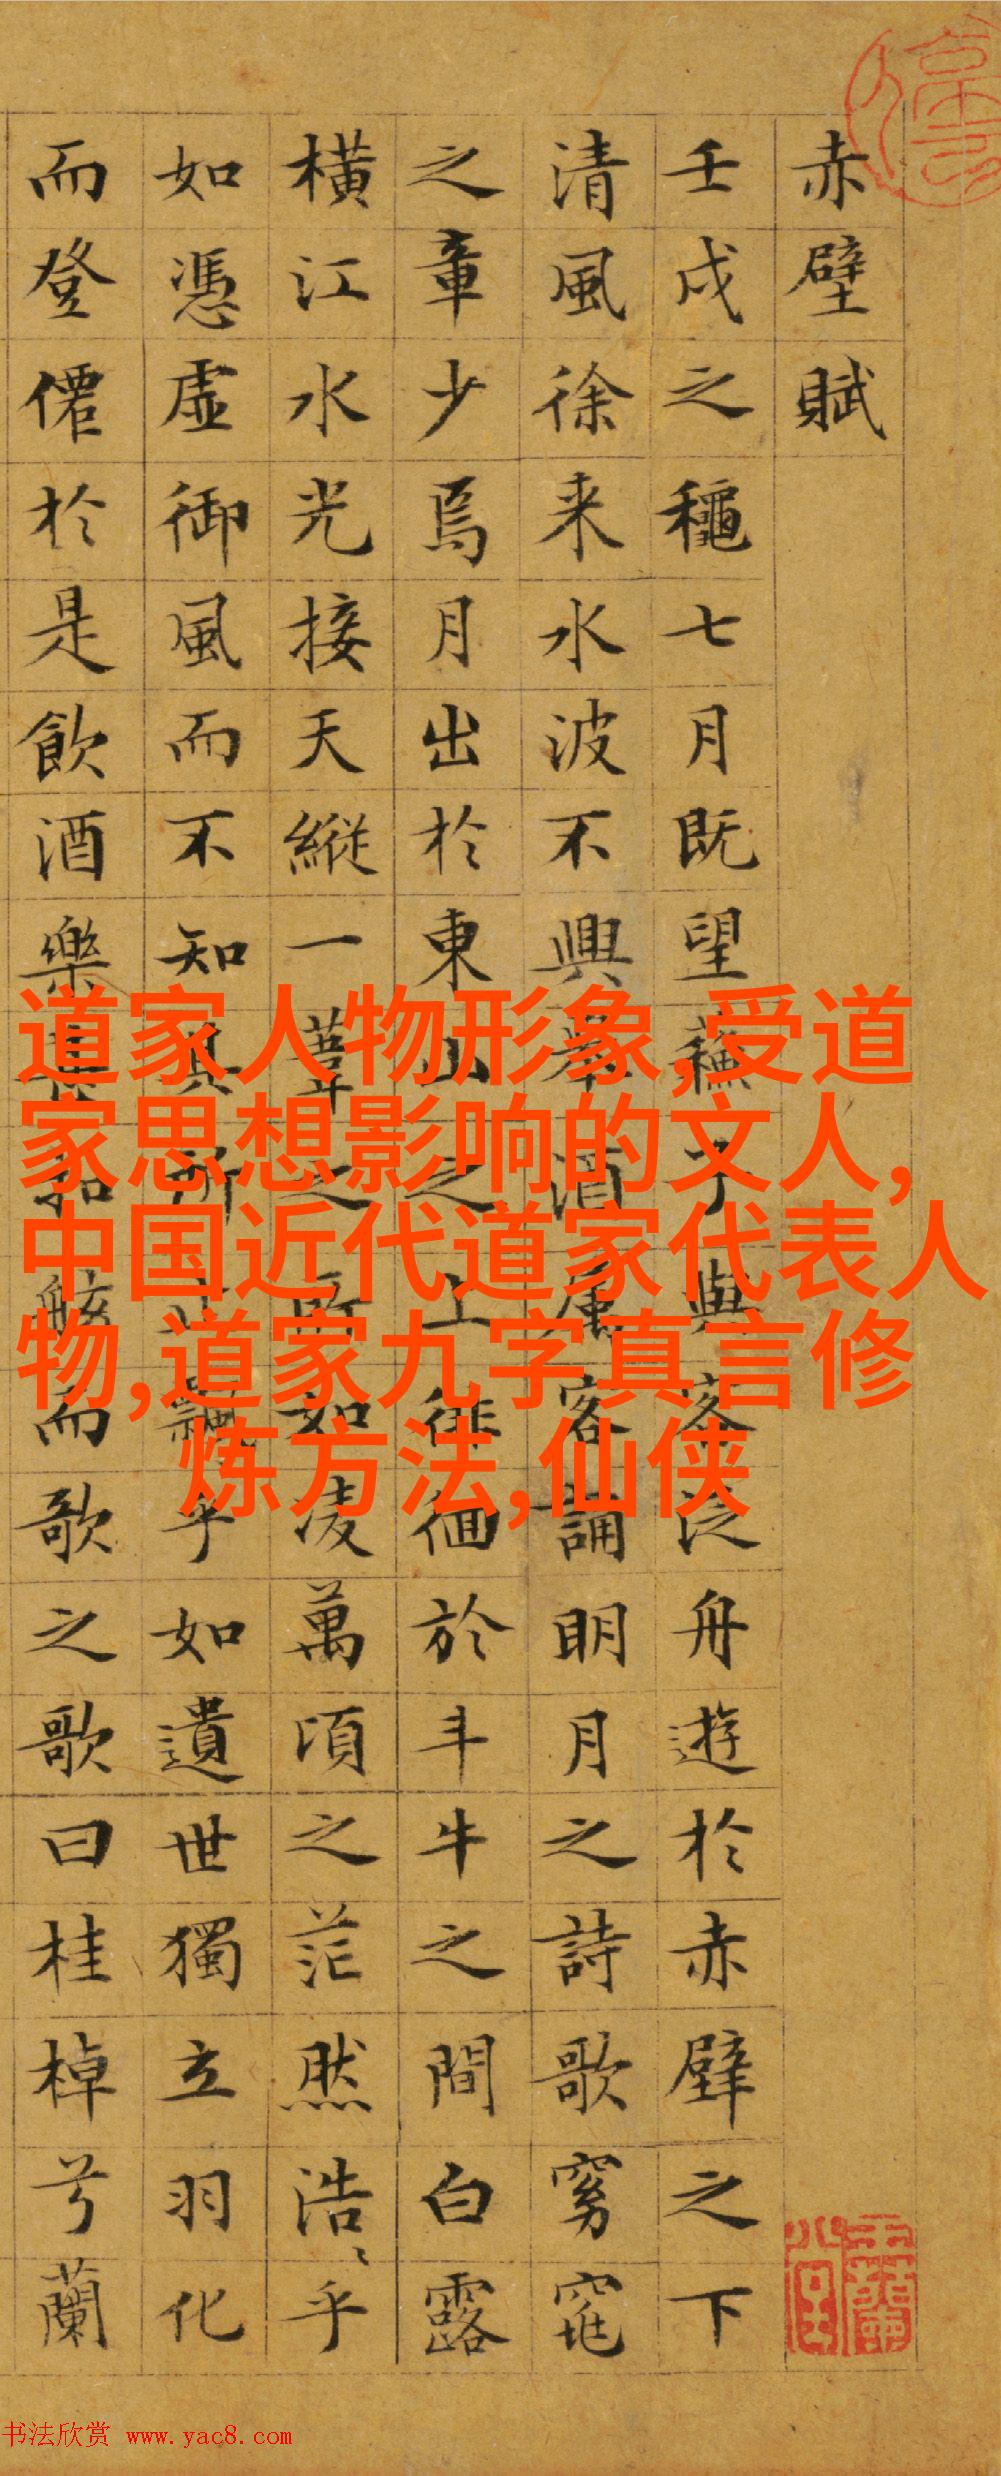 赤壁賦
壬戌之穐七月既望蘓子與客泛舟遊於赤壁之下
清風徐来水波不興舉酒属客誦明月之詩歌窈窕
之章少焉月出於東山之上徘徊於斗牛之間白露
橫江水光接天縱一葦之所如凌萬頃之茫然浩〻乎
如憑虛御風而不知其所止飄〻乎如遺世獨立羽化
而登僊於是飲酒樂甚扣舷而歌之歌曰桂棹兮蘭
道家人物形象,受道
家思想影响的文人,
中国近代道家代表人
物,道家九字真言修
炼方法,仙侠
书法欣赏 www.yac8.com